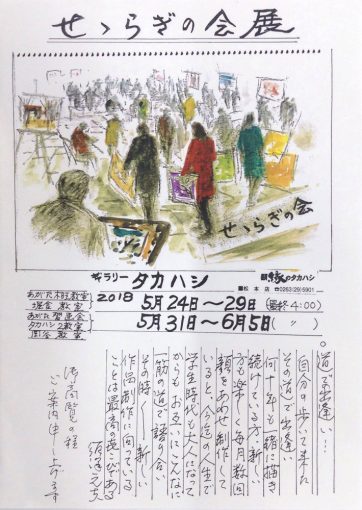 せゝらぎの会展
せゝらぎの会
ギャラリー タカハシ
額縁のタカハシ
松本店 ☎0263(29)5901
2018 5月24日〜29日(最終4:00)
5月31日〜6月5日( 〃 )
あがた木旺教室
あがた習画会
タカハシ2教室
道で出逢い…
自分の歩いて来た
その道で出逢い
何十年も一緒に描き
続けている方・新しい
方も楽しく毎月数回
顔をあわせ制作して
いると、今迄の人生で
学生時代も大人になって
からもお互いにこんなに
一筋の道で語り合い
その時く 新しい
作品制作に向っている
ことは最高の喜びである
御高覧の程
ご案内申し上げます